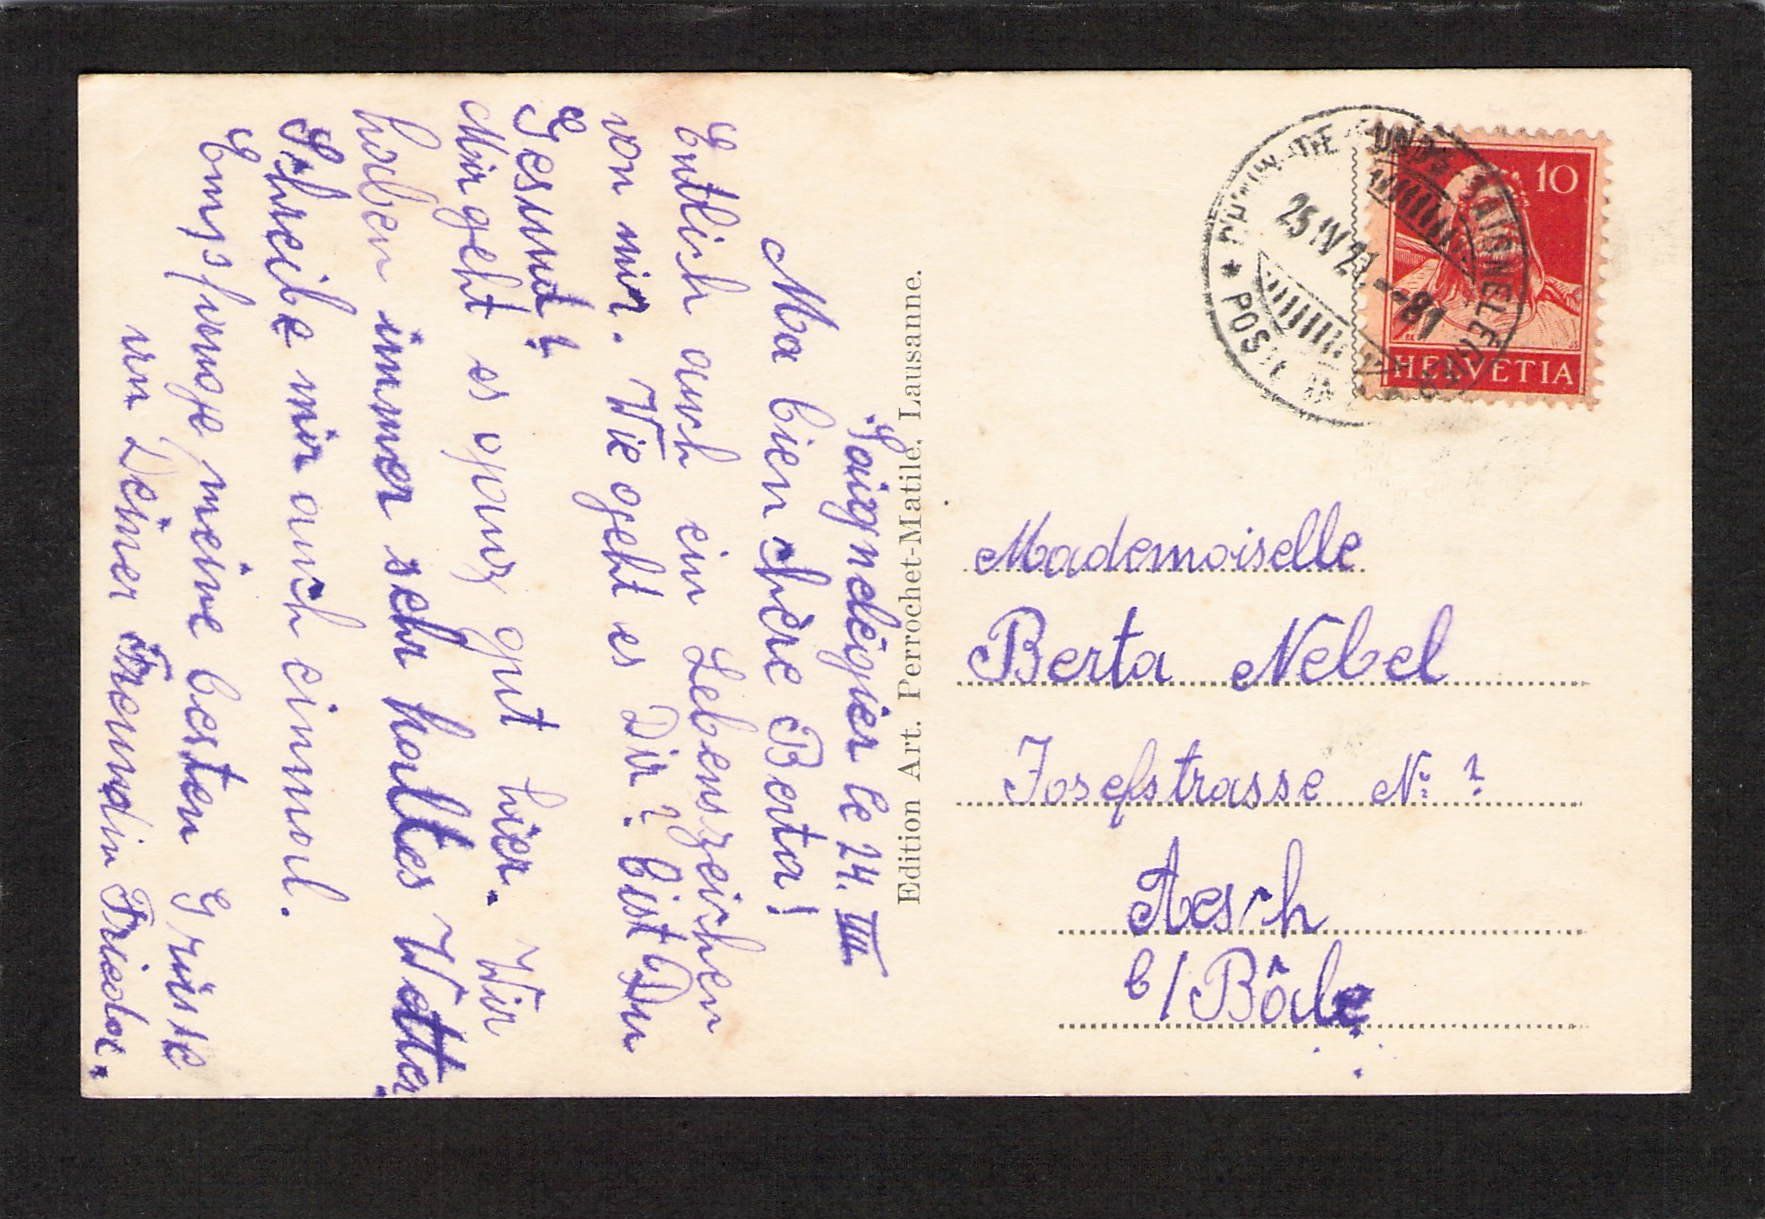 Saignelégier le 24. III
Ma bien chère Berta!
Entlich auch ein Lebenszeichen
von mir. Wie geht es Dir? bist Du
Gesund?
Mir geht es ganz gut hier. Wir
haben immer sehr kaltes Wetter.
Schreibe mir auch einmal.
Empfange meine besten Grüsse
von Deiner Freundin Frieda.
Edition Art. Perrochet-Matile, Lausanne.
10
HELVETIA
25 IV 2 - 8
Mademoiselle
Berta Nebel
Josefstrasse No ?
Aesch
b/ Bâle